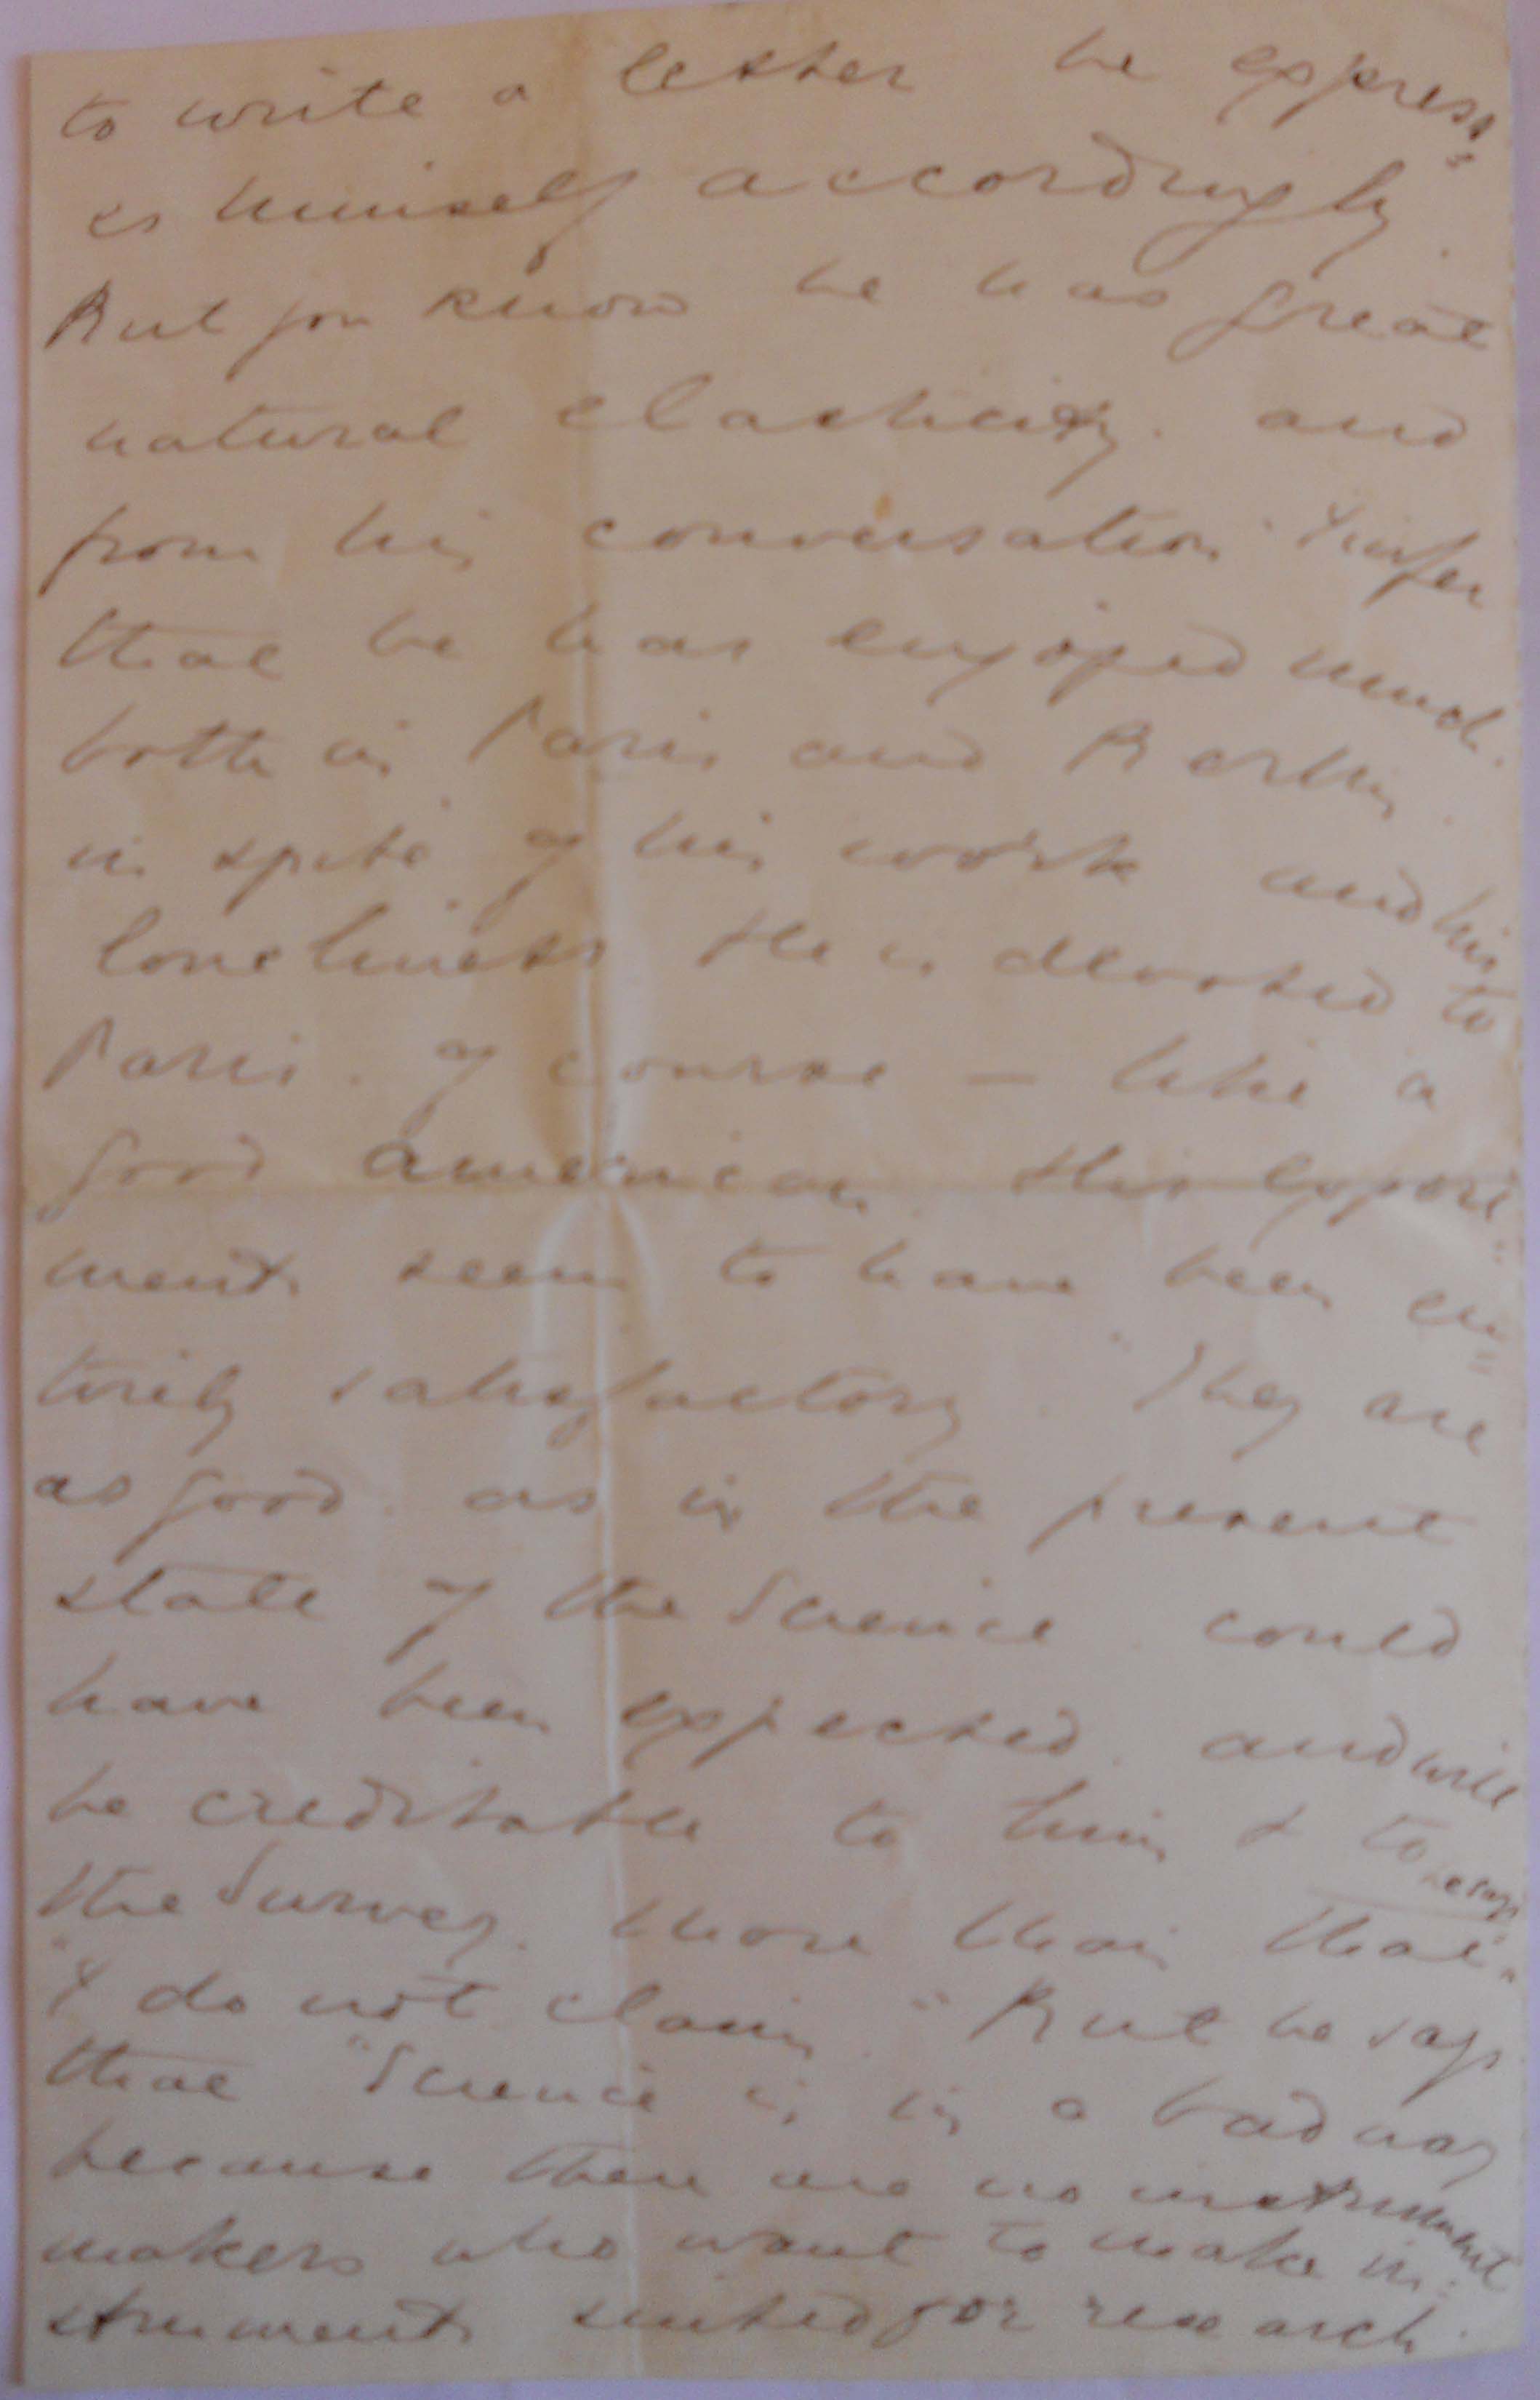 to write a letter he express=
es himself accordingly.
But you know he has great
natural elasticity. and
from his conversation I infer
that he has enjoyed much.
both in Paris and Berlin.
in spite of his work and his
loneliness He is devoted to
Paris. of course — like a
good American. His experi=
ments seem to have been en=
tirely satisfactory. "They are
as good. as in the present
state of the Science. could
have been expected. and will
be creditable to him & to
the Survey. More than that he says
"I do not claim." But he says.
that "Science is in a bad way
because there are no instrument
makers who want to make in=
struments suited for research.